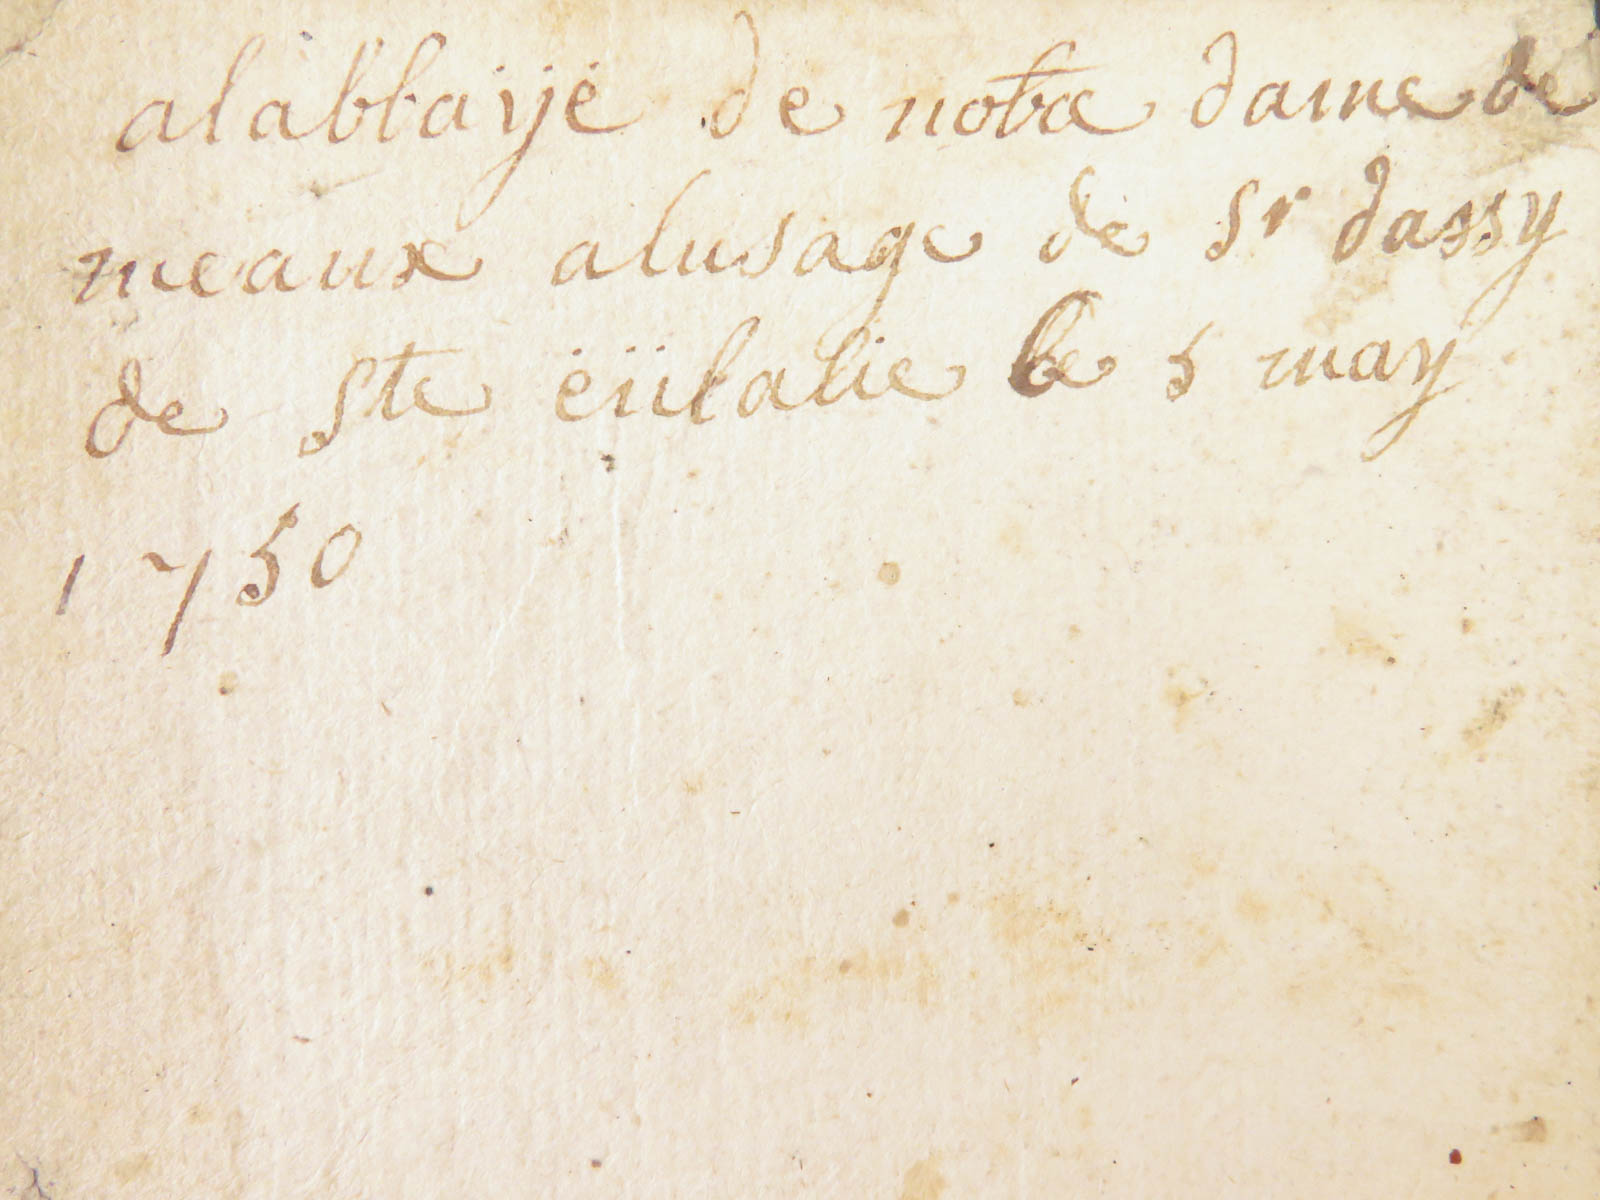 alabbaÿë de notre dame de
meaux alusage de Sr dassy
de ste ëülalie le 5 may
1750